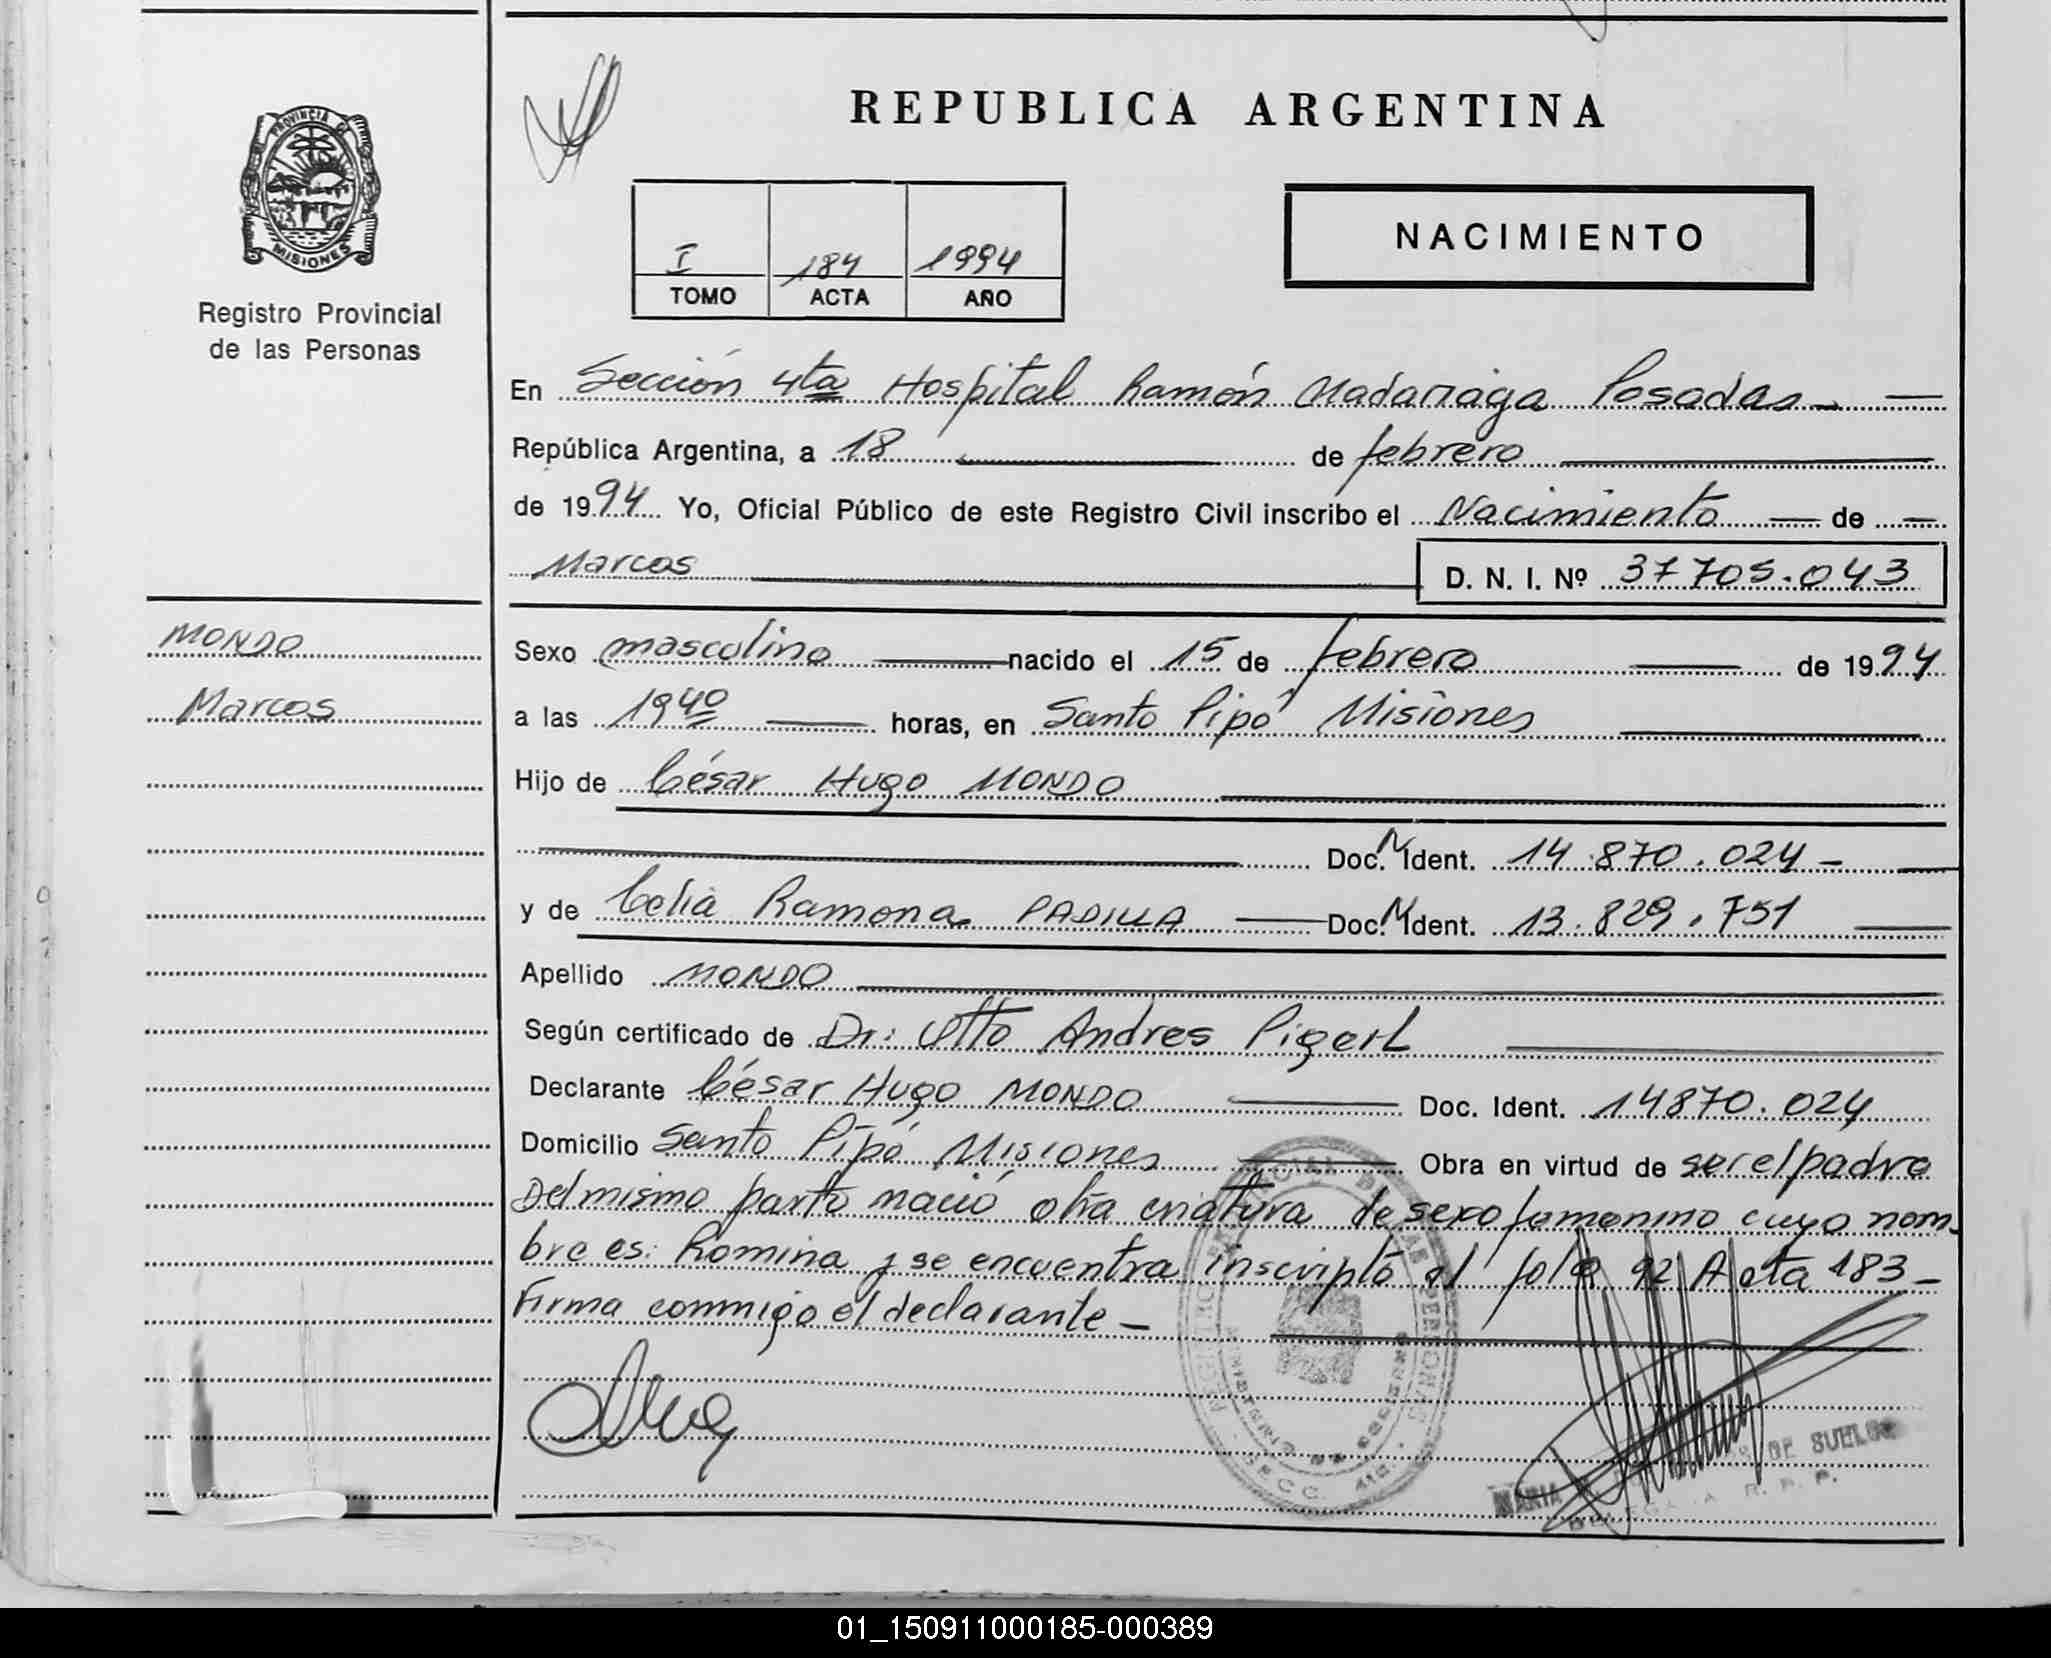 REPUBLICA ARGENTINA
PROVINCIA DE
MISIONES
Registro Provincial
de las Personas
I 184 1994
TOMO ACTA AÑO
NACIMIENTO
En Sección 4ta Hospital Ramón Madariaga Posadas
República Argentina, a 18 de febrero
de 1994 Yo, Oficial Público de este Registro Civil inscribo el Nacimiento de
Marcos D. N. I. Nº 37705.043
MONDO
Marcos
Sexo masculino nacido el 15 de febrero de 1994
a las 19 40 horas, en Santo Pipó Misiones
Hijo de César Hugo MONDO
Doc. N Ident. 14.870.024
y de Celia Ramona PADILLA Doc. N Ident. 13.829.751
Apellido MONDO
Según certificado de Dr: Otto Andres Pigerl
Declarante César Hugo MONDO Doc. Ident. 14870.024
Domicilio Santo Pipó Misiones Obra en virtud de ser el padre
Del mismo parto nació otra criatura de sexo femenino cuyo nom-
bre es: Romina y se encuentra inscripta al folio 92 Acta 183-
Firma conmigo el declarante-
MARIA DE SUELO
R. P. P.
01_150911000185-000389